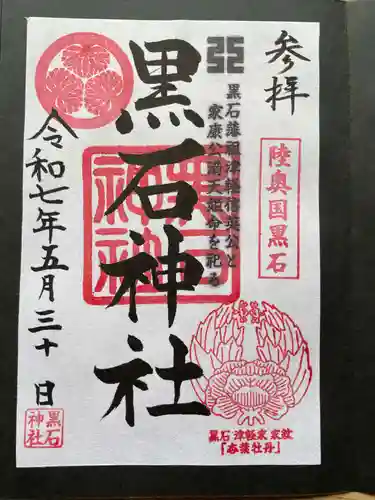 参拝
陸奥国黒石
黒石藩祖津軽信英公と
家康公満天姫命を祀る
黒石神社
黒石神社
令和七年五月三十日
黒石神社
黒石津軽家家紋
「杏葉牡丹」